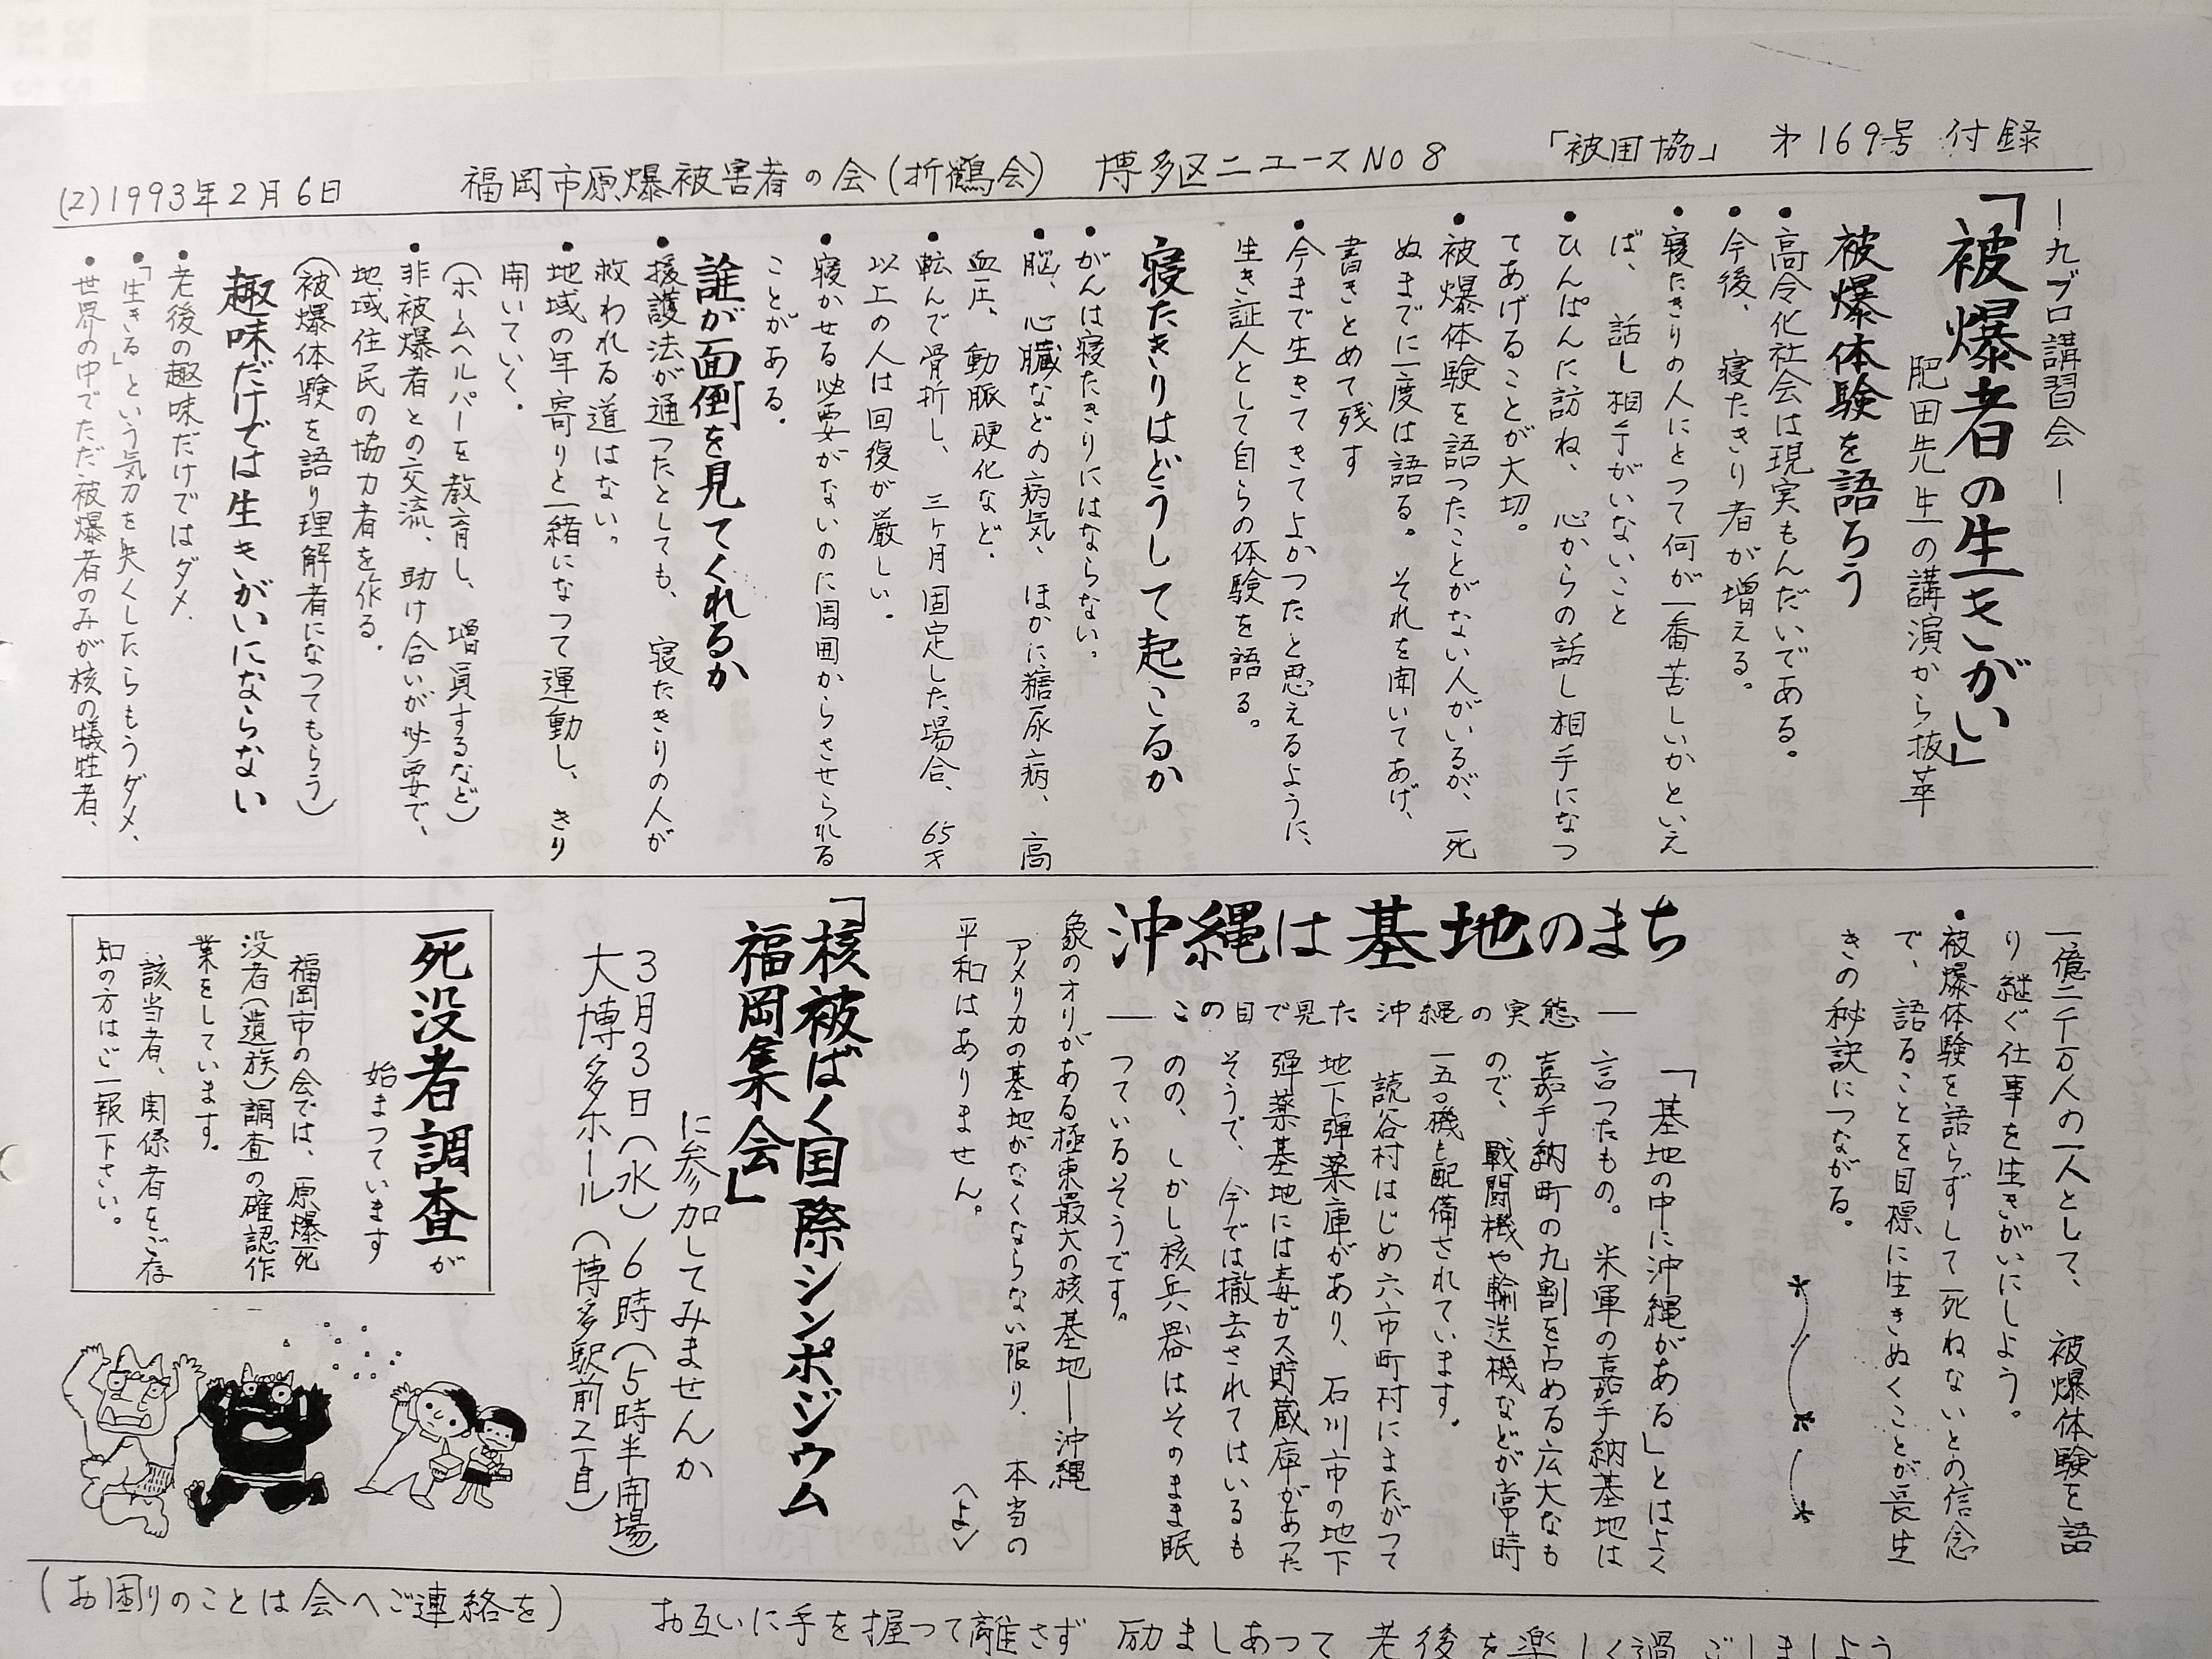 (2) 1993年2月6日　福岡市原爆被害者の会(折鶴会)　博多区ニュースNO8　「被団協」　第169号　付録
―九ブロ講習会―
「被爆者の生きがい」
肥田先生の講演から抜萃
被爆体験を語ろう
・高令化社会は現実もんだいである。
・今後、寝たきり者が増える。
・寝たきりの人にとって何が一番苦しいかといえ
ば、話し相手がいないこと
・ひんぱんに訪ね、心からの話し相手になっ
てあげることが大切。
・被爆体験を語ったことがない人がいるが、死
ぬまでに一度は語る。それを聞いてあげ、
書きとめて残す
・今まで生きてきてよかったと思えるように、
生き証人として自らの体験を語る。
寝たきりはどうして起こるか
・がんは寝たきりにはならない。
・脳、心臓などの病気、ほかに糖尿病、高
血圧、動脈硬化など.
・転んで骨折し、三ヶ月固定した場合、65才
以上の人は回復が厳しい.
・寝かせる必要がないのに周囲からさせられる
ことがある.
誰が面倒を見てくれるか
・援護法が通ったとしても、寝たきりの人が
救われる道はない。
・地域の年寄りと一緒になって運動し、きり
開いていく.
(ホームヘルパーを教育し、増員するなど)
・非被爆者との交流、助け合いが必要で、
地域住民の協力者を作る.
(被爆体験を語り理解者になってもらう)
趣味だけでは生きがいにならない
・老後の趣味だけではダメ.
・「生きる」という気力を失くしたらもうダメ、
・世界の中でただ被爆者のみが核の犠牲者、
一億二千万人の一人として、被爆体験を語
り継ぐ仕事を生きがいにしよう。
・被爆体験を語らずして死ねないとの信念
で、語ることを目標に生きぬくことが長生
きの秘訣につながる。
沖縄は基地のまち
―この目で見た沖縄の実態―
「基地の中に沖縄がある」とはよく
言ったもの。米軍の嘉手納基地は
嘉手納町の九割を占める広大なも
ので、戦闘機や輸送機などが常時
一五〇機も配備されています.
読谷村はじめ六市町村にまたがって
地下弾薬庫があり、石川市の地下
弾薬基地には毒ガス貯蔵庫があった
そうで、今では撤去されてはいるも
のの、しかし核兵器はそのまま眠
っているそうです。
象のオリがある極東最大の核基地―沖縄
アメリカの基地がなくならない限り、本当の
平和はありません。　〈よ〉
「核被ばく国際シンポジウム
福岡集会」
に参加してみませんか
3月3日(水)6時(5時半開場)
大博多ホール(博多駅前2丁目)
死没者調査が
始まっています
福岡市の会では、原爆死
没者(遺族)調査の確認作
業をしています。
該当者、関係者をご存
知の方はご一報下さい。
(お困りのことは会へご連絡を)　お互いに手を握って離さず　励ましあって　老後を楽しく過ごしましょう